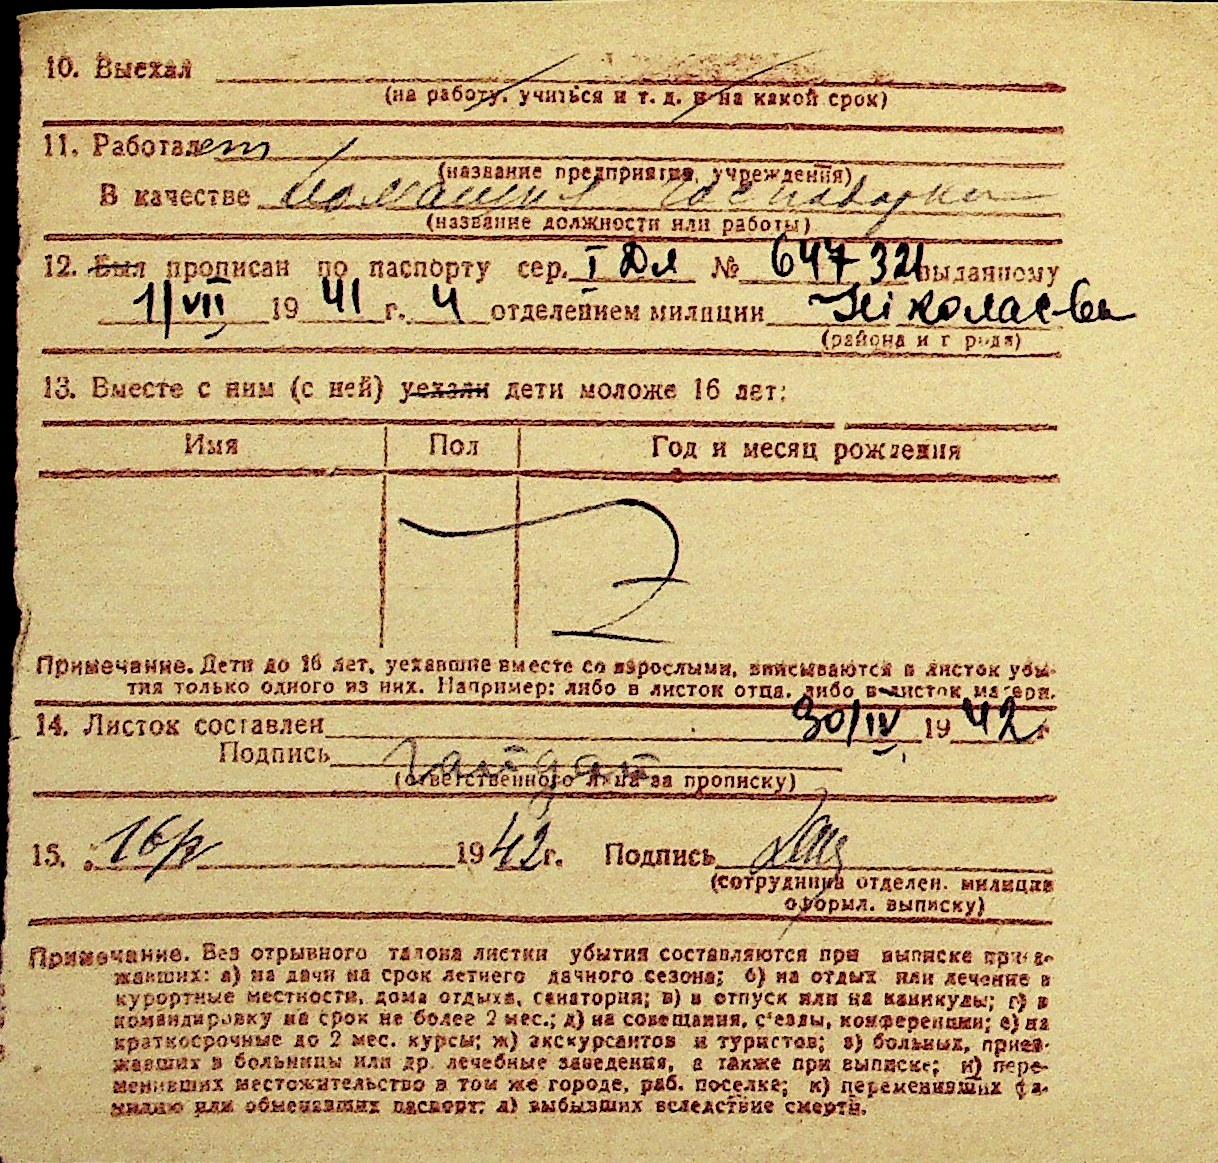 10. Выехал
(на работу, учиться и т. д. и на какой срок)
11. Работает
(название предприятия, учреждения)
В качестве домашня господарка
(название должности или работы)
12. Был прописан по паспорту сер. I Дл № 647321 выданному
1/VII 1941 г. 4 отделением милиции Ніколаєва
(района и города)
13. Вместе с ним (с ней) уехали дети моложе 16 лет:
Имя Пол Год и месяц рождения
Примечание. Дети до 16 лет, уехавшие вместе со взрослыми, вписываются в листок убы-
тия только одного из них. Например: либо в листок отца, либо в листок матери.
14. Листок составлен 30/IV 1942 г
Подпись
(ответственного лица за прописку)
15. 1942 г. Подпись
(сотрудника отделен. милиции
оформл. выписку)
Примечание. Без отрывного талона листки убытия составляются при выписке приез-
жавших: а) на дачи на срок летнего дачного сезона; б) на отдых или лечение в
курортные местности, дома отдыха, санатории; в) в отпуск или на каникулы; г) в
командировку на срок не более 2 мес.; д) на совещания, с'езды, конференции; е) на
краткосрочные до 2 мес. курсы; ж) экскурсантов и туристов; з) больных, приез-
жавших в больницы или др. лечебные заведения, а также при выписке; и) пере-
менивших местожительство в том же городе, раб. поселке; к) переменивших фа-
милию или обменявших паспорт; л) выбывших вследствие смерти.